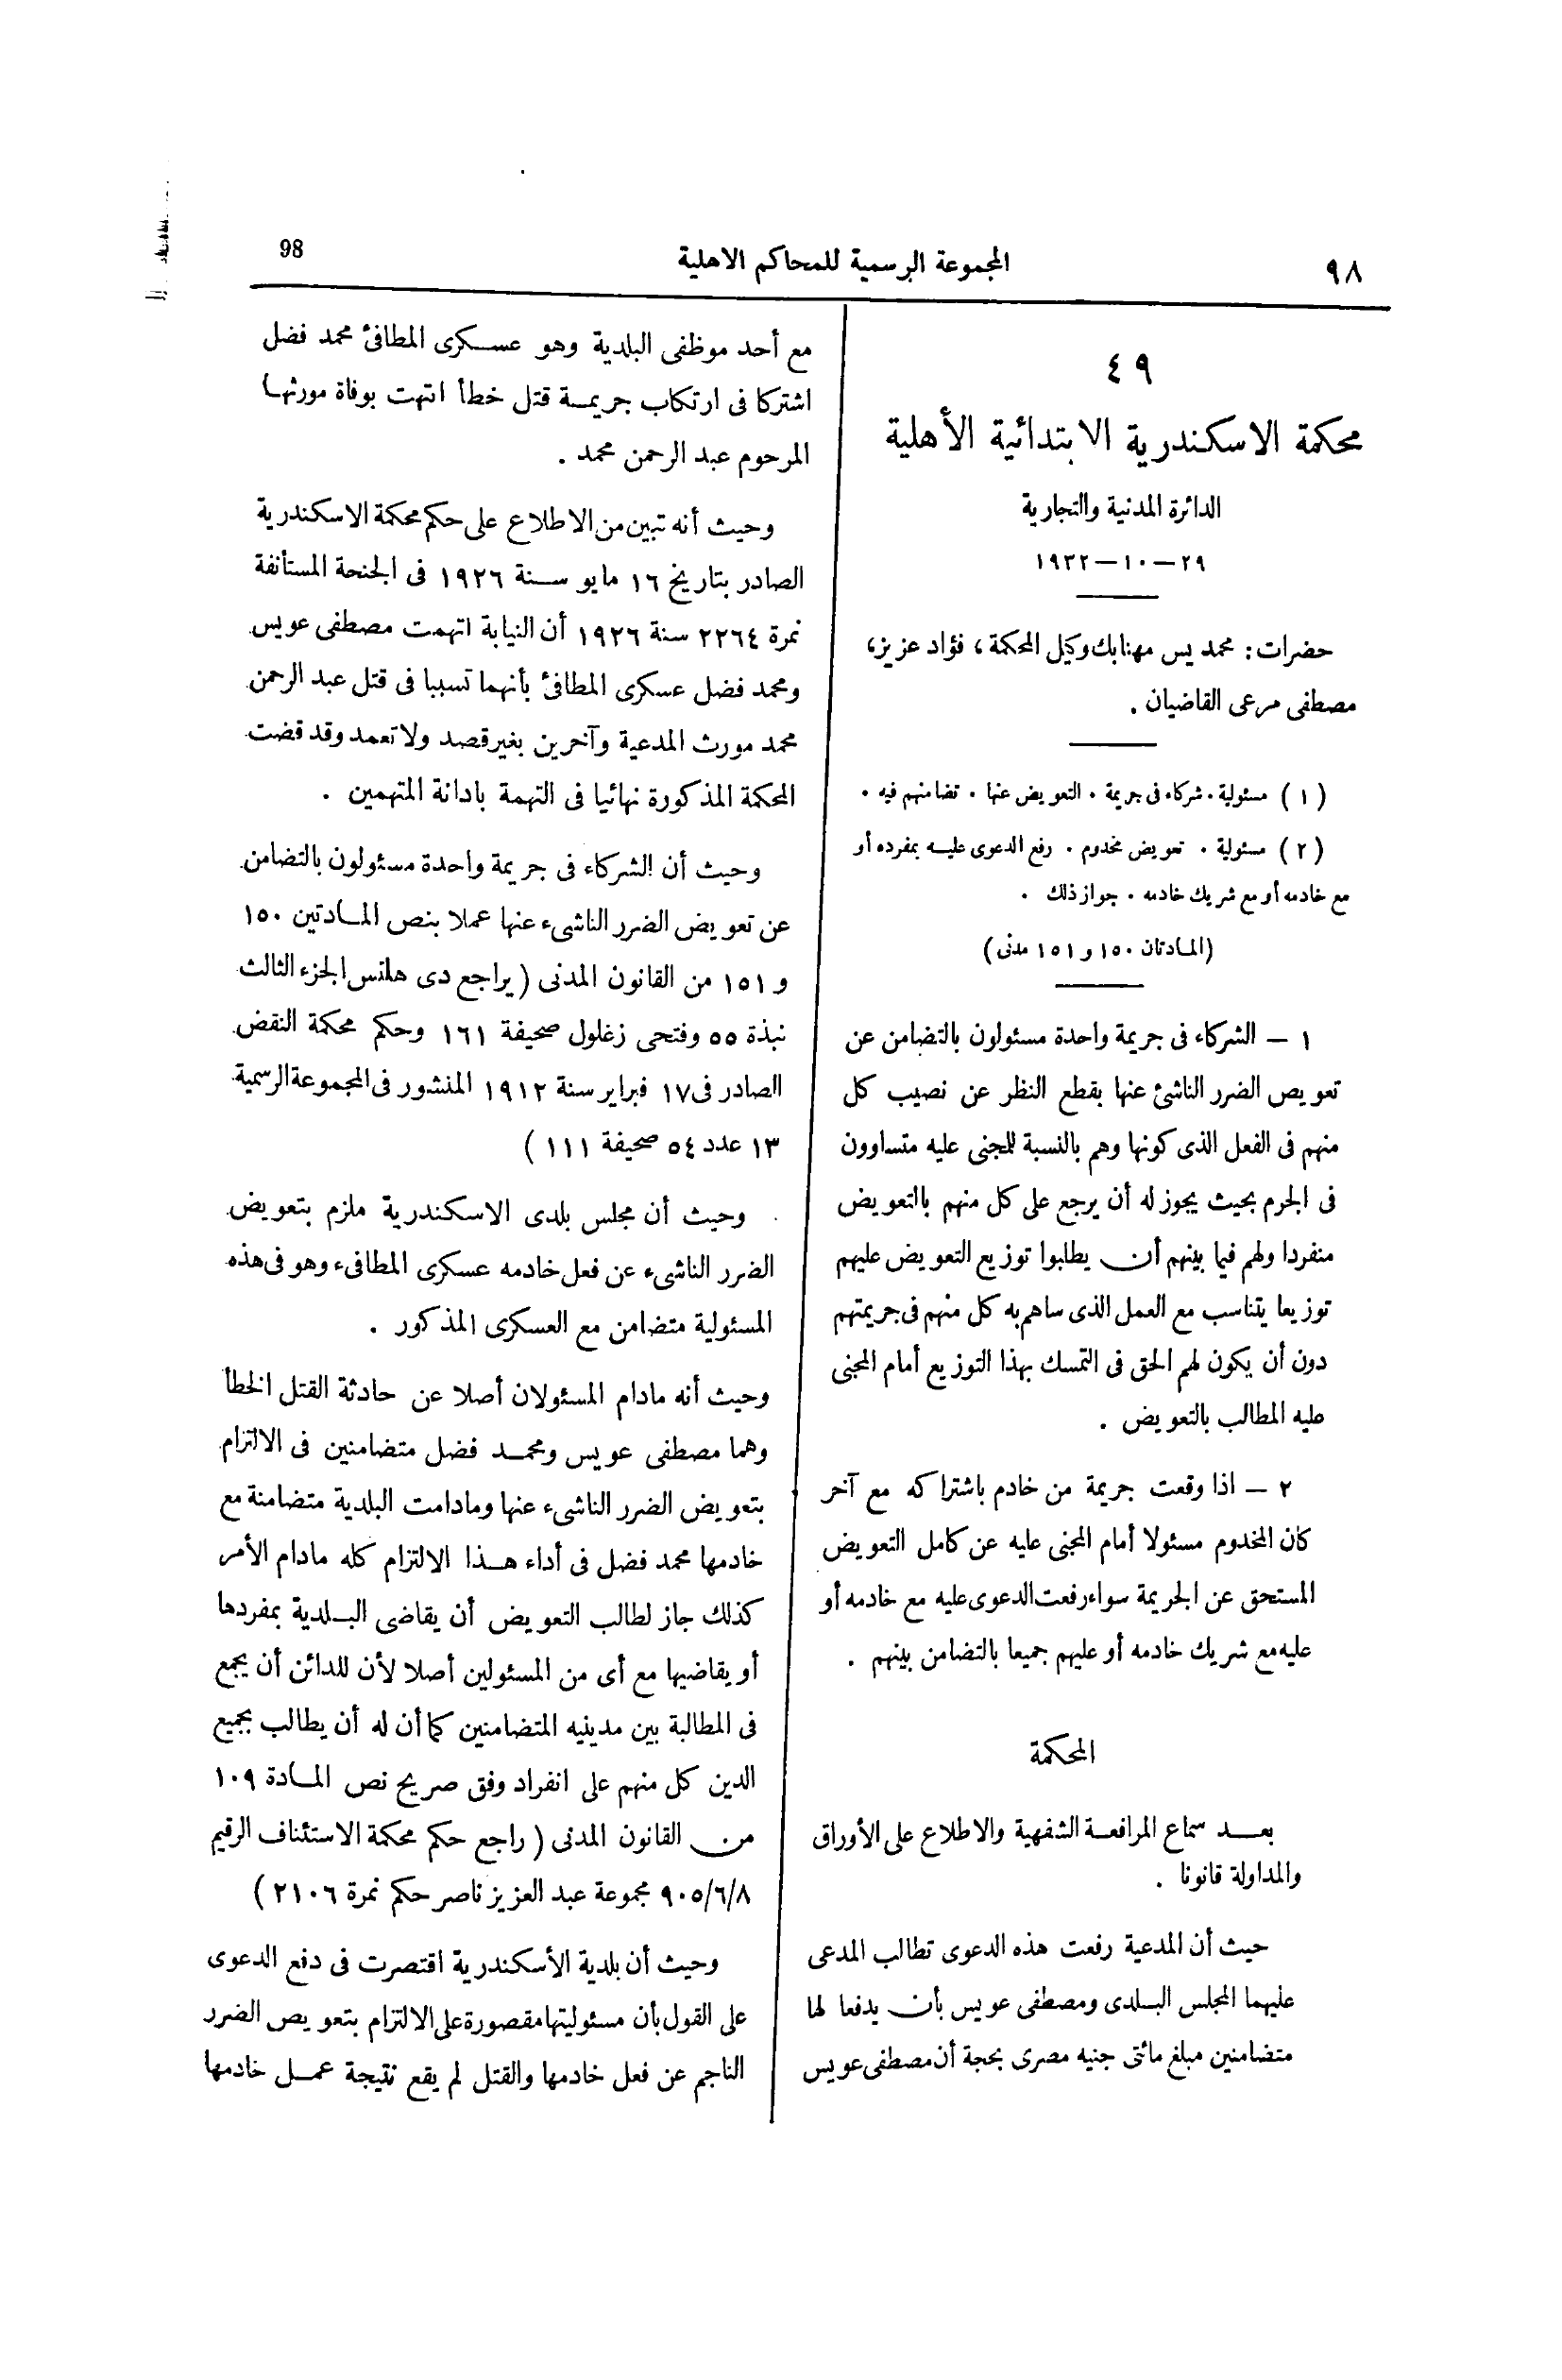 ٩٨
المجموعة الرسمية للمحاكم الاهلية
98
٤٩
محكمة الاسكندرية الابتدائية الأهلية
الدائرة المدنية والتجارية
٢٩ — ١٠ — ١٩٣٢
حضرات : محمد يس مهنا بك وكيل المحكمة ، فؤاد عزيز ،
مصطفى مرعى القاضيان .
( ١ ) مسئولية . شركاء فى جريمة . التعويض عنها . تضامنهم فيه .
( ٢ ) مسئولية . تعويض مخدوم . رفع الدعوى عليه بمفرده أو
مع خادمه أو مع شريك خادمه . جواز ذلك .
(المادتان ١٥٠ و ١٥١ مدنى)
١ — الشركاء فى جريمة واحدة مسئولون بالتضامن عن
تعويض الضرر الناشئ عنها بقطع النظر عن نصيب كل
منهم فى الفعل الذى كونها وهم بالنسبة للمجنى عليه متساوون
فى الجرم بحيث يجوز له أن يرجع على كل منهم بالتعويض
منفردا ولهم فيما بينهم أن يطلبوا توزيع التعويض عليهم
توزيعا يتناسب مع العمل الذى ساهم به كل منهم فى جريمتهم
دون أن يكون لهم الحق فى التمسك بهذا التوزيع أمام المجنى
عليه المطالب بالتعويض .
٢ — اذا وقعت جريمة من خادم باشتراكه مع آخر
كان المخدوم مسئولا أمام المجنى عليه عن كامل التعويض
المستحق عن الجريمة سواء رفعت الدعوى عليه مع خادمه أو
عليه مع شريك خادمه أو عليهم جميعا بالتضامن بينهم .
المحكمة
بعد سماع المرافعة الشفهية والاطلاع على الأوراق
والمداولة قانونا .
حيث أن المدعية رفعت هذه الدعوى تطالب المدعى
عليهما المجلس البلدى ومصطفى عويس بأن يدفعا لها
متضامنين مبلغ مائتى جنيه مصرى بحجة أن مصطفى عويس
مع أحد موظفى البلدية وهو عسكرى المطافئ محمد فضل
اشتركا فى ارتكاب جريمة قتل خطأ انتهت بوفاة مورثها
المرحوم عبد الرحمن محمد .
وحيث أنه تبين من الاطلاع على حكم محكمة الاسكندرية
الصادر بتاريخ ١٦ مايو سنة ١٩٢٦ فى الجنحة المستأنفة
نمرة ٢٢٦٤ سنة ١٩٢٦ أن النيابة اتهمت مصطفى عويس
ومحمد فضل عسكرى المطافئ بأنهما تسببا فى قتل عبد الرحمن
محمد مورث المدعية وآخرين بغير قصد ولا تعمد وقد قضت
المحكمة المذكورة نهائيا فى التهمة بادانة المتهمين .
وحيث أن الشركاء فى جريمة واحدة مسئولون بالتضامن
عن تعويض الضرر الناشىء عنها عملا بنص المادتين ١٥٠
و ١٥١ من القانون المدنى ( يراجع دى هلتس الجزء الثالث
نبذة ٥٥ وفتحى زغلول صحيفة ١٦١ وحكم محكمة النقض
الصادر فى ١٧ فبراير سنة ١٩١٢ المنشور فى المجموعة الرسمية
١٣ عدد ٥٤ صحيفة ١١١ )
وحيث أن مجلس بلدى الاسكندرية ملزم بتعويض
الضرر الناشىء عن فعل خادمه عسكرى المطافىء وهو فى هذه
المسئولية متضامن مع العسكرى المذكور .
وحيث أنه مادام المسئولان أصلا عن حادثة القتل الخطأ
وهما مصطفى عويس ومحمد فضل متضامنين فى الالتزام
بتعويض الضرر الناشىء عنها ومادامت البلدية متضامنة مع
خادمها محمد فضل فى أداء هذا الالتزام كله مادام الأمر
كذلك جاز لطالب التعويض أن يقاضى البلدية بمفردها
أو يقاضيها مع أى من المسئولين أصلا لأن للدائن أن يجمع
فى المطالبة بين مدينيه المتضامنين كما أن له أن يطالب بجميع
الدين كل منهم على انفراد وفق صريح نص المادة ١٠٩
من القانون المدنى ( راجع حكم محكمة الاستئناف الرقيم
٩٠٥/٦/٨ مجموعة عبد العزيز ناصر حكم نمرة ٢١٠٦ )
وحيث أن بلدية الأسكندرية اقتصرت فى دفع الدعوى
على القول بأن مسئوليتها مقصورة على الالتزام بتعويص الضرر
الناجم عن فعل خادمها والقتل لم يقع نتيجة عمل خادمها